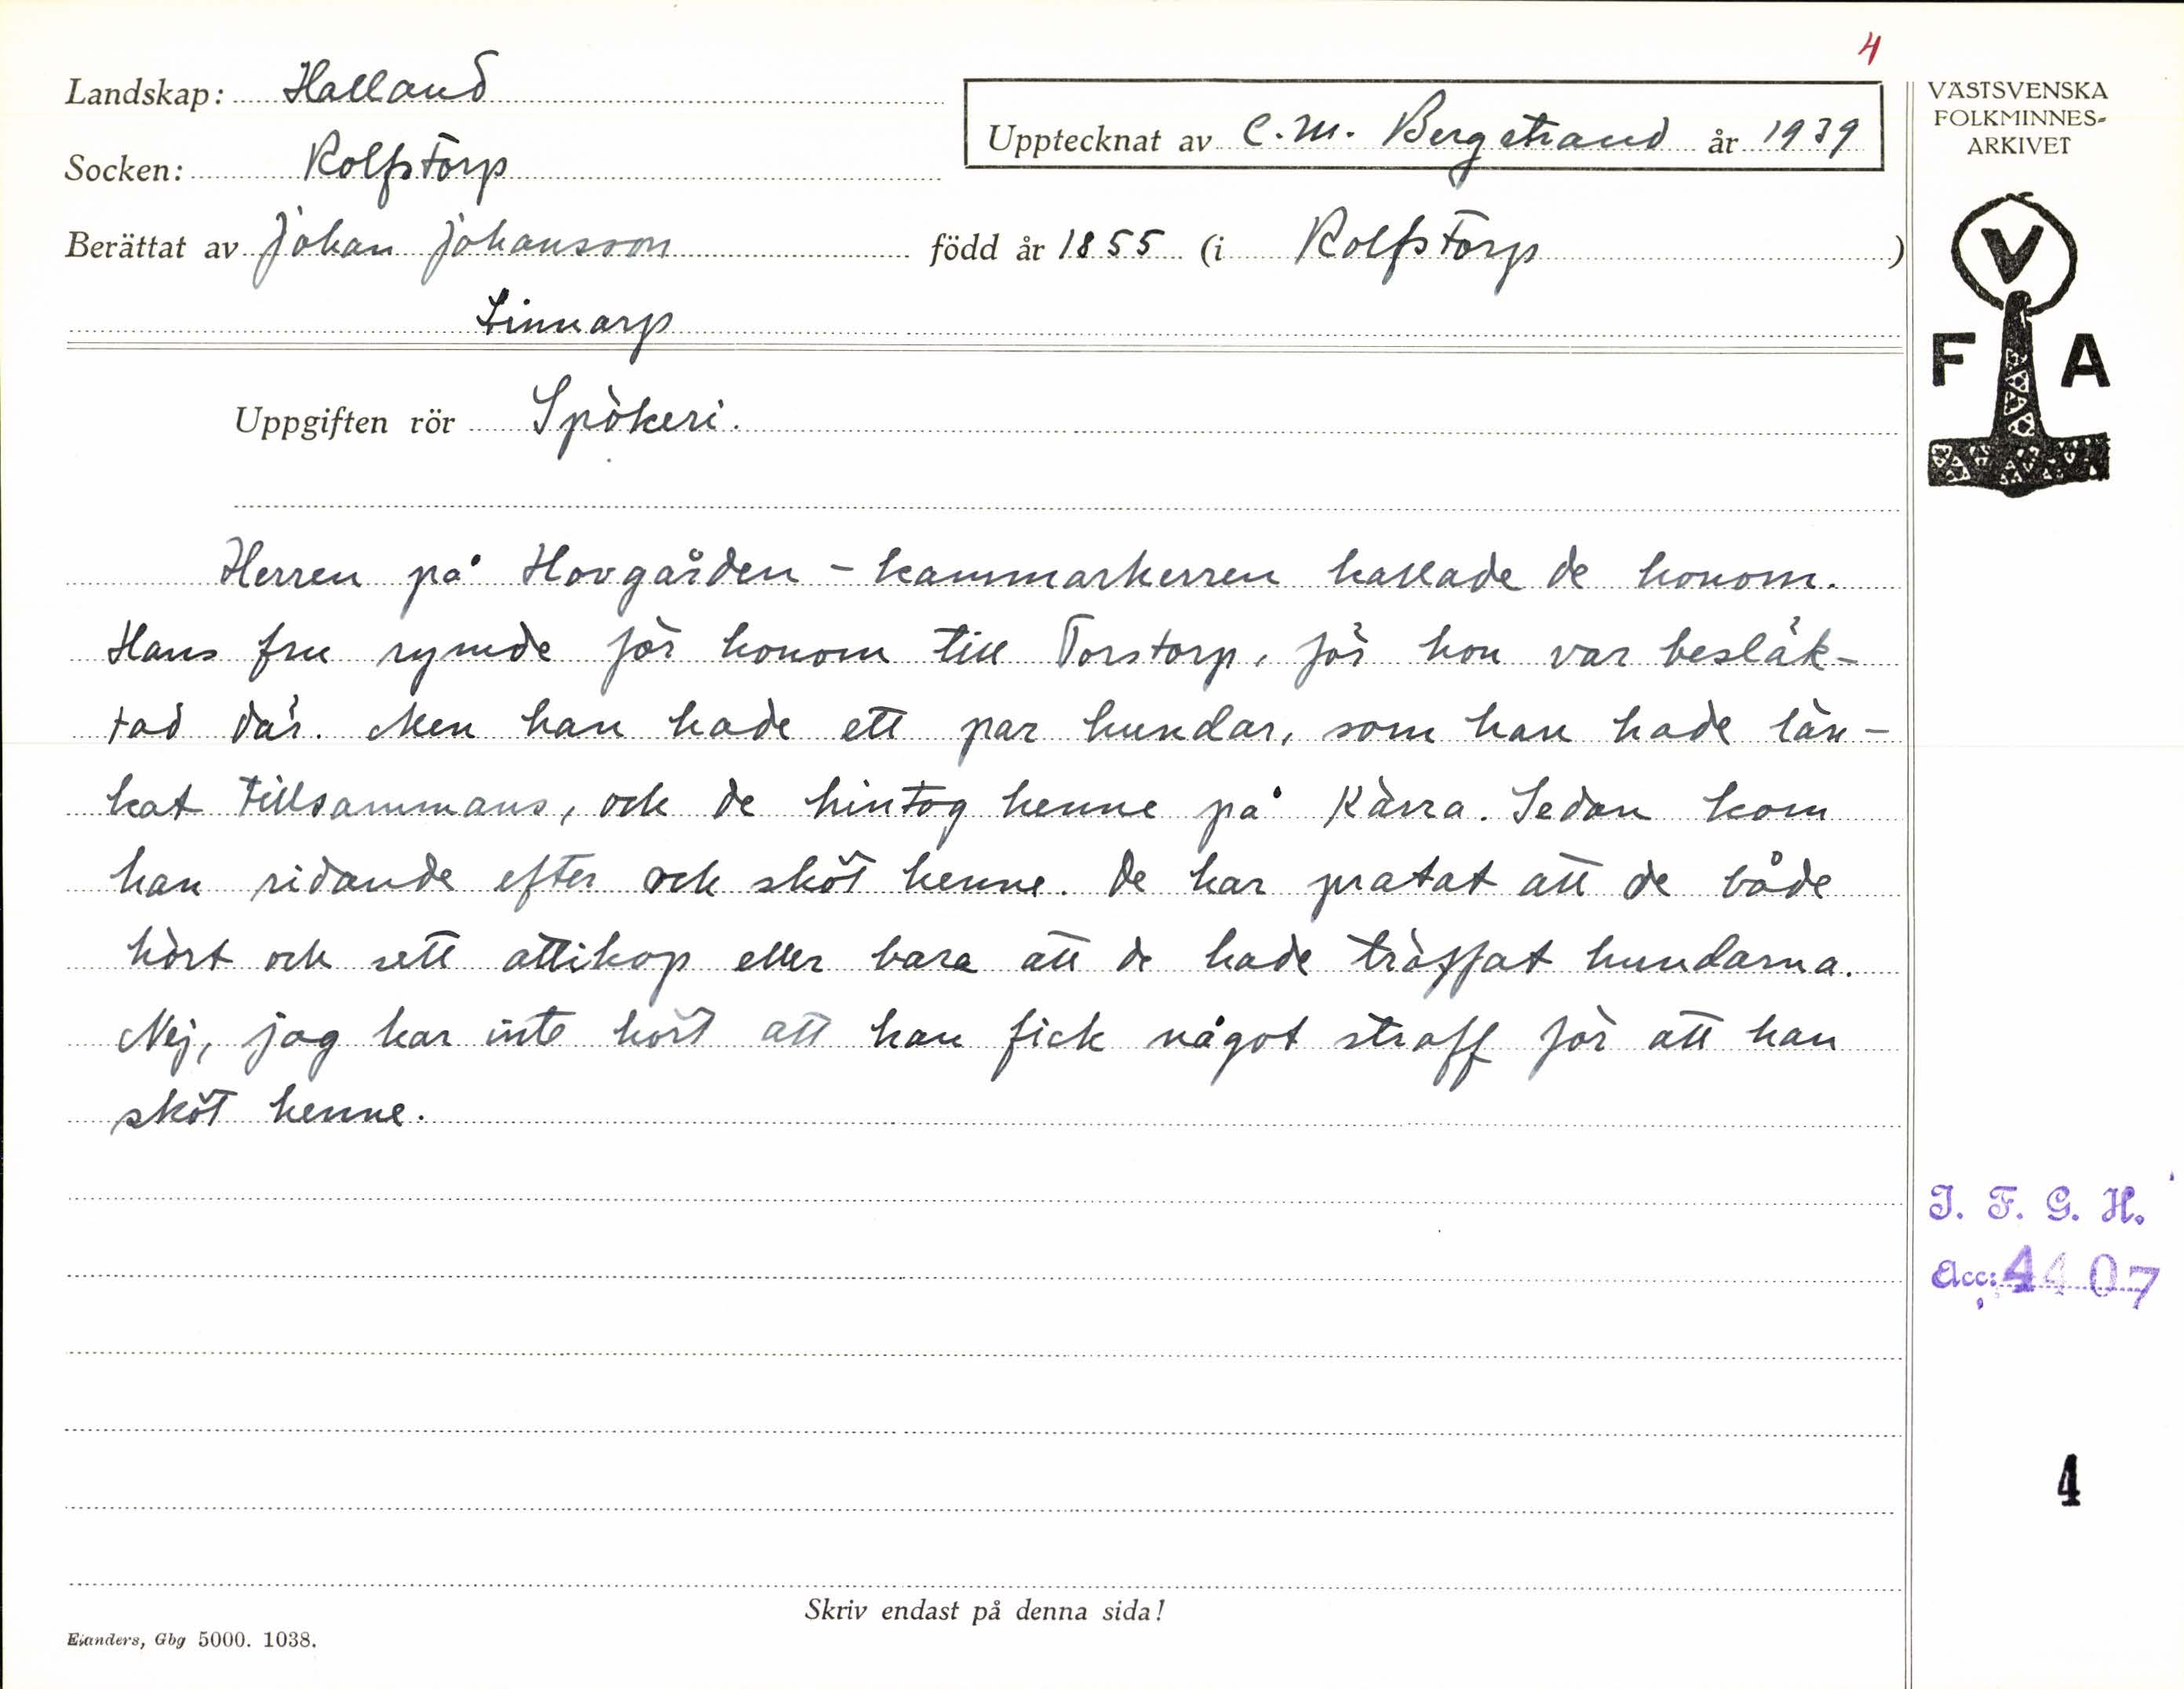 4
Landskap: Halland
Socken: Rolfstorp
Upptecknat av C. M. Bergstrand år 1939
Berättat av Johan Johansson född år 1855 (i Rolfstorp)
Linnarp
Uppgiften rör Spökeri.
Herren på Hovgården - kammarherren kallade de honom.
Hans fru rymde för honom till Torstorp, för hon var besläk-
tad där. Men han hade ett par hundar, som han hade län-
kat tillsammans, och de hintog henne på Kärra. Sedan kom
han ridande efter och sköt henne. De har pratat att de både
hört och sett alltihop eller bara att de hade träffat hundarna.
Nej, jag har inte hört att han fick något straff för att han
sköt henne.
Skriv endast på denna sida!
Elanders, Gbg 5000. 1038.
VÄSTSVENSKA
FOLKMINNES-
ARKIVET
V
F A
I. F. G. H.
Acc: 4407
4